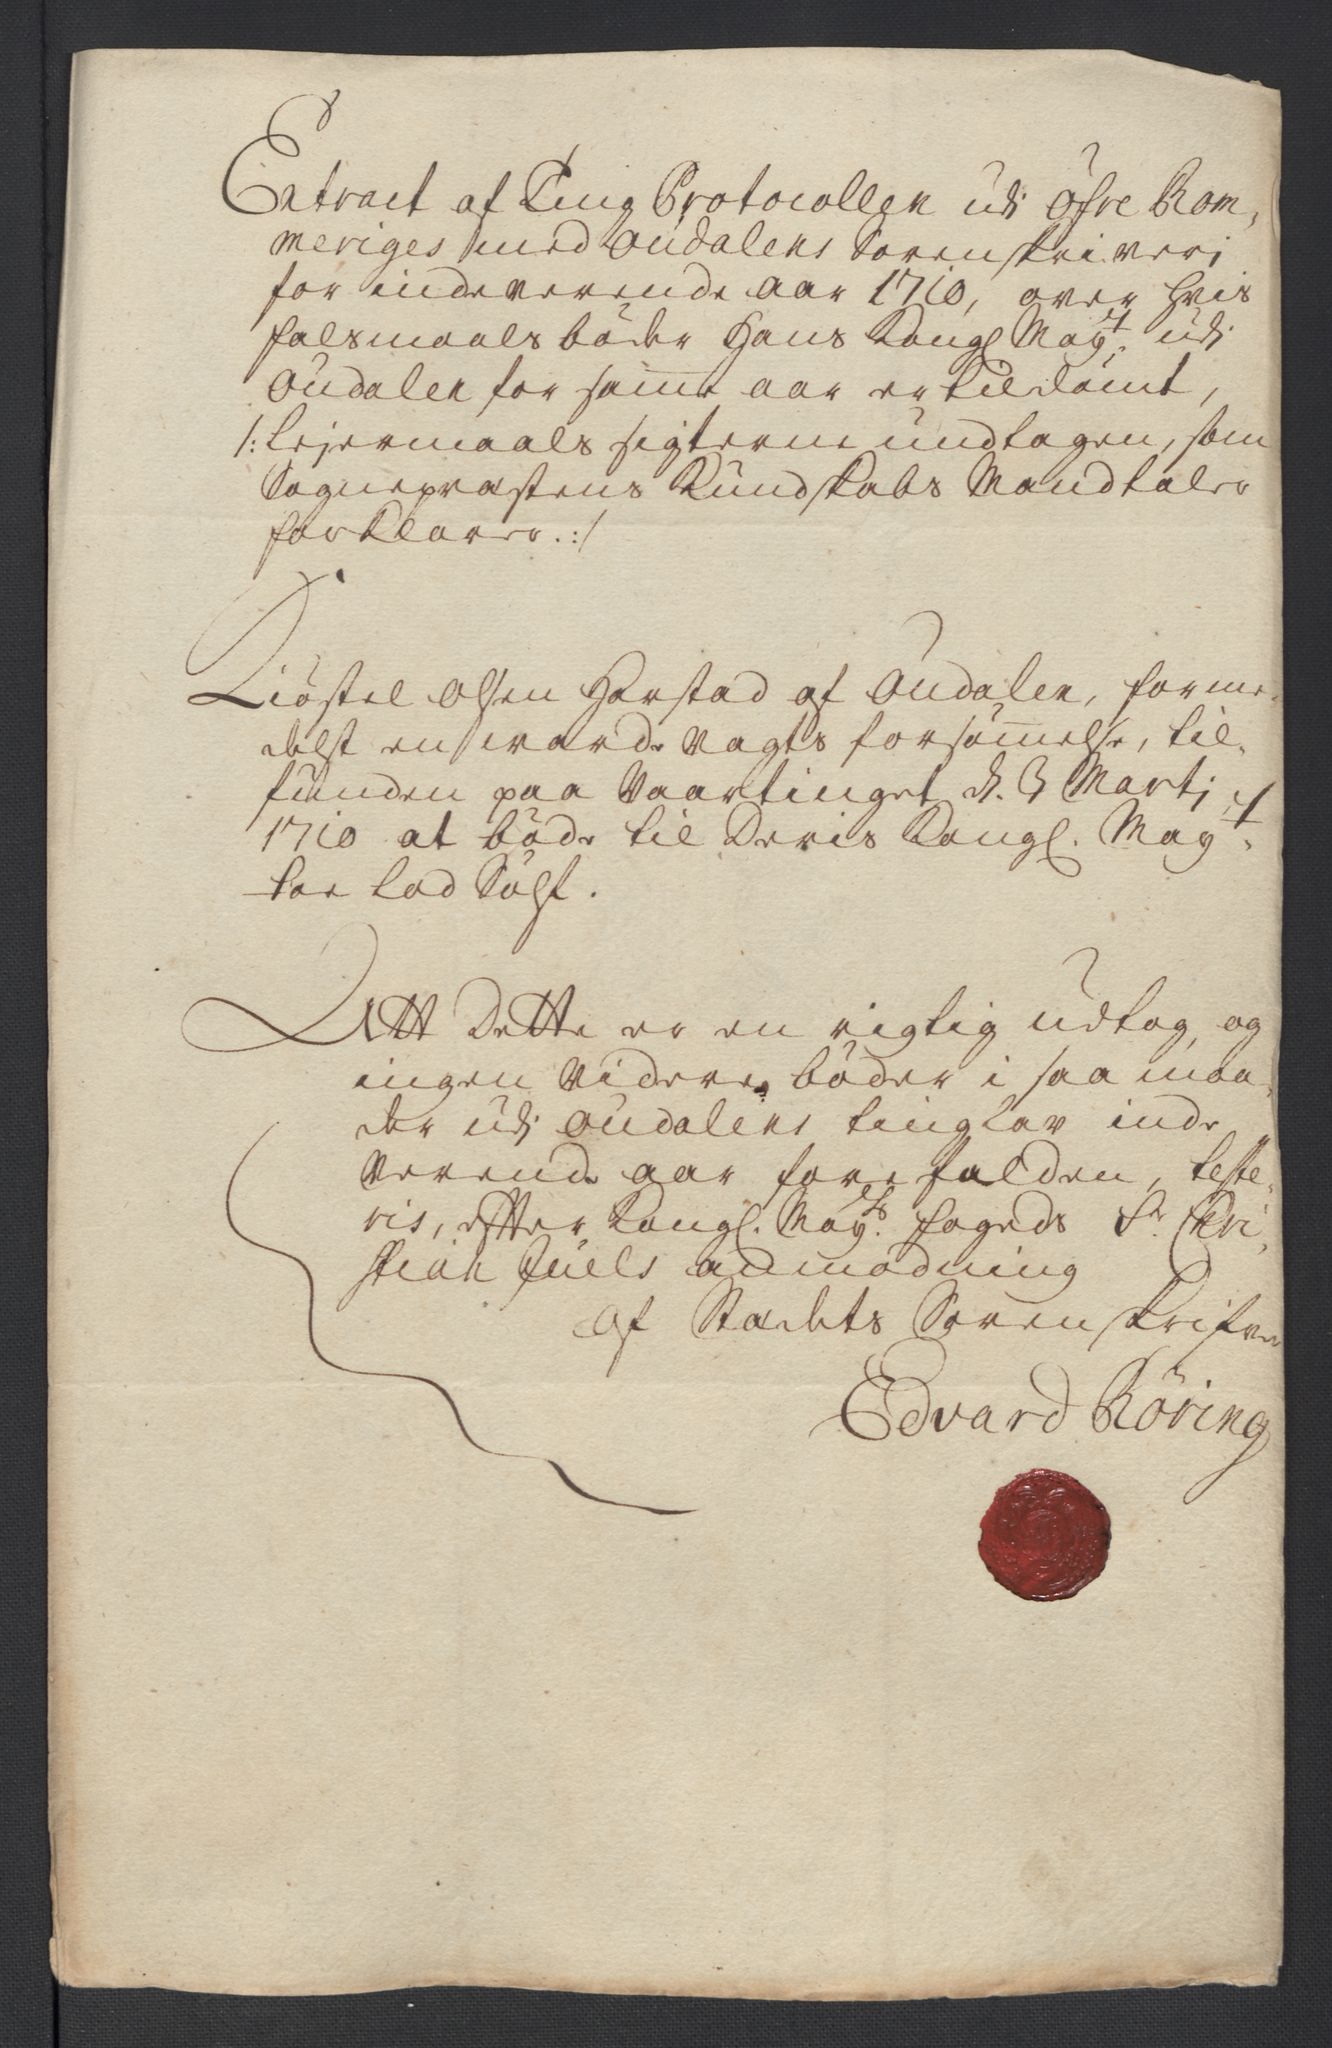 Extract af Ting Protocollen udi Øfre Rom,
meriges med Oudalens Sorenskriveri
for indeverende aar 1710, over hvis
falsmaals bøder Hans Kongl May:t udi
Oudalen for samme aar er tildømt,
/: Lejermaals sigterne undtagen, som
Sogneprestens Kundskabs Mandtaler
forklarer. :/
Kiøstel Olsen Harstad af Oudalen, forme,
delst en warde vagts forsømmelse, til,
funden paa Vaartinget d. 3 Martj
1710 at bøde til Deris Kongl. May:t
toe Lod Sølf.
Att Dette er en rigtig udtog, og
ingen videre bøder i saa maa,
der udi Oudalens tinglav inde
verende aar forefalden, teste,
ris, efter Kongl. May:ts fogeds Sr. Chri,
stian Juels anmodning
af Stædets Sorenskrifver
Edvard Röring